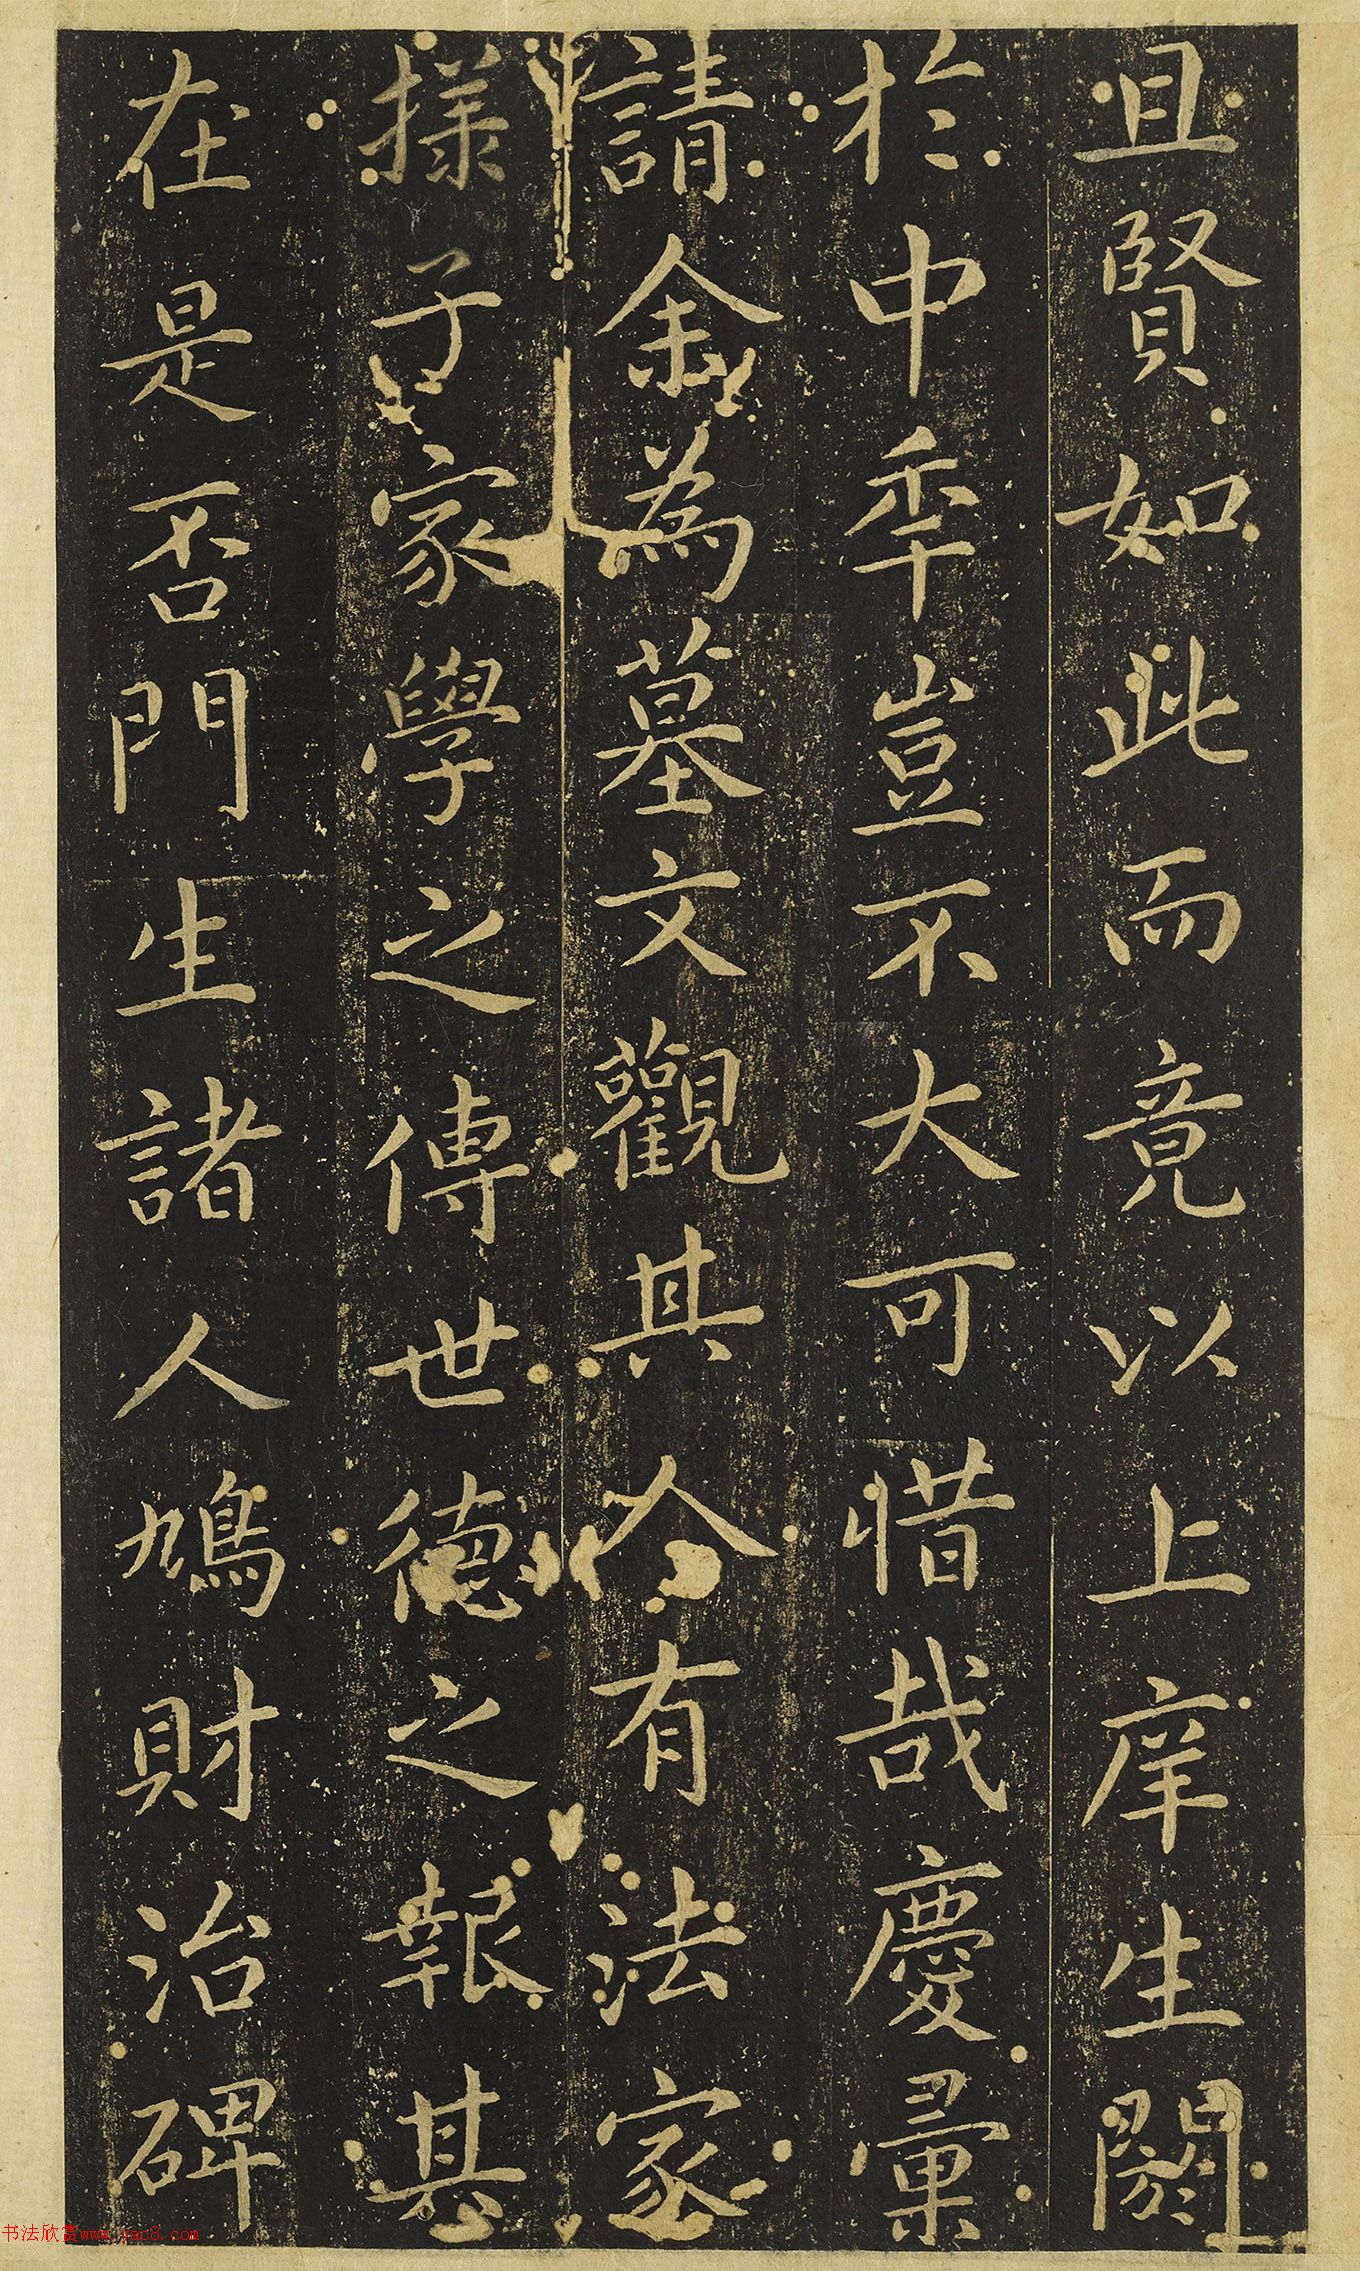 且賢如此而竟以上庠生閼
於中年豈不大可惜哉慶彙
請余為墓文觀其人有法家
㨾子家學之傳世德之報其
在是否門生諸人鳩財治碑
书法欣赏www.yac8.com